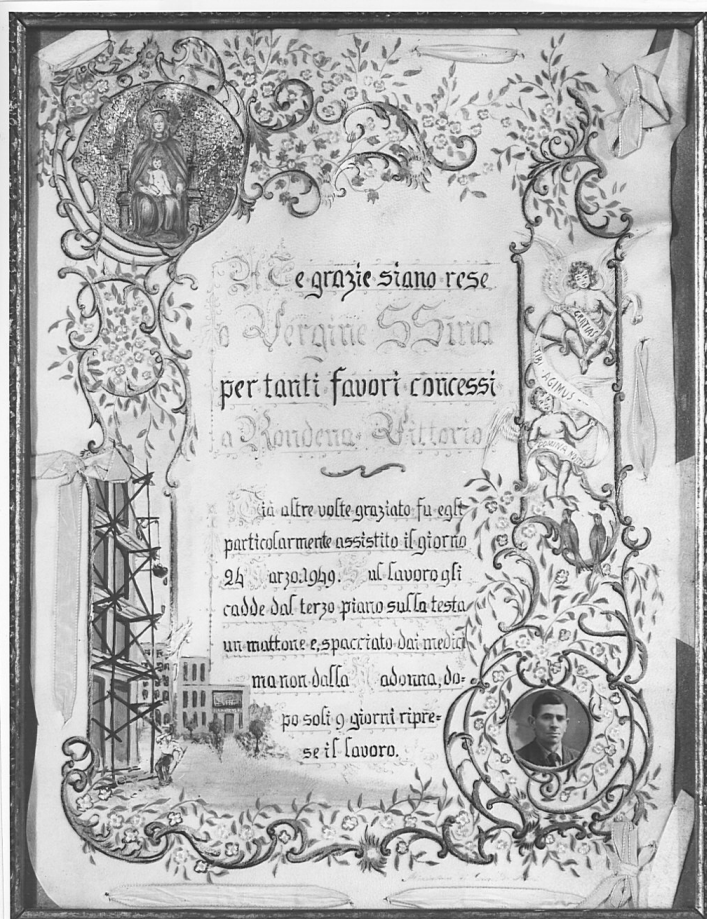 A Te grazie siano rese
o Vergine SSima
per tanti favori concessi
a Rondena Vittorio
Già altre volte graziato fu egli
particolarmente assistito il giorno
24 Marzo.1949. Sul lavoro gli
cadde dal terzo piano sulla testa
un mattone e, spacciato dai medici
ma non dalla Madonna, do=
po soli 9 giorni ripre=
se il lavoro.
GRATIAS
TIBI AGIMUS